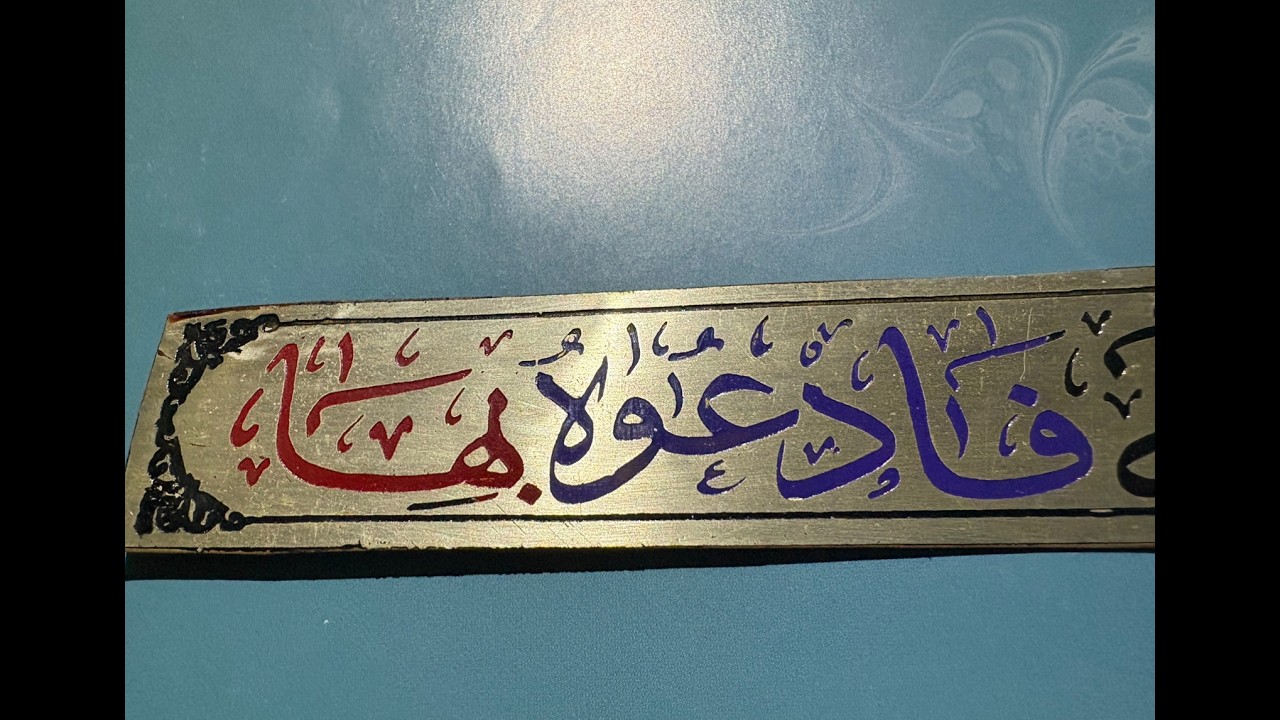 فَادْعُوهُ بِهَا